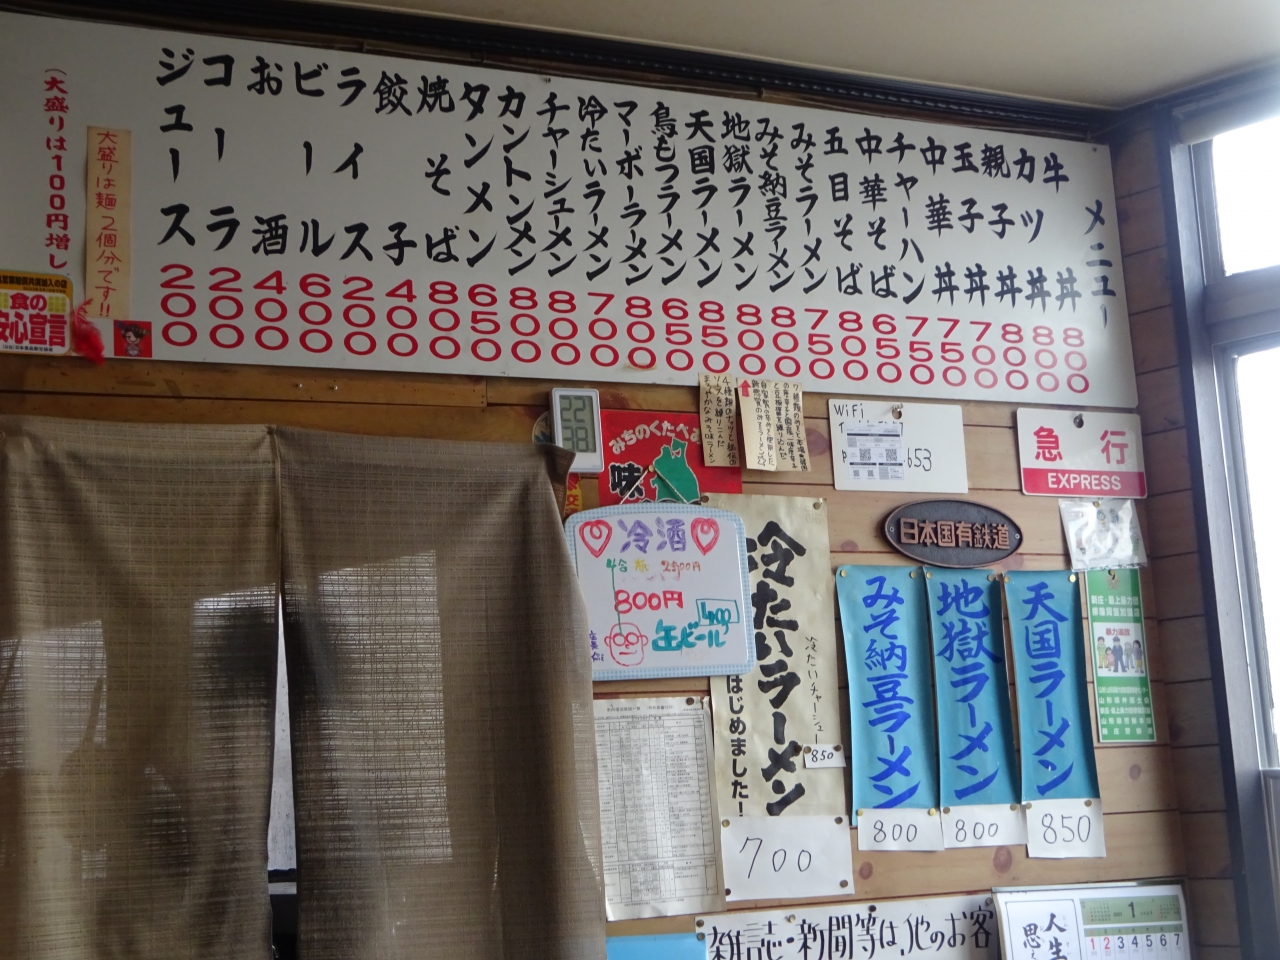 メニュー
牛丼 800
カツ丼 800
親子丼 800
玉子丼 700
中華丼 750
チャーハン 750
中華そば 650
五目そば 800
みそラーメン 750
みそ納豆ラーメン 800
地獄ラーメン 800
天国ラーメン 850
鳥もつラーメン 650
マーボーラーメン 800
冷たいラーメン 700
チャーシューメン 800
カントンメン 800
タンメン 650
焼そば 800
餃子 400
ライス 200
ビール 600
お酒 400
コーラ 200
ジュース 200
大盛りは麺2個分です!!
(大盛りは100円増し
食の
安心宣言
22
38
みちのくたべ
味
WiFi
653
急行
EXPRESS
日本国有鉄道
冷酒
4合瓶 2500円
800円
缶ビール
400
冷たいラーメン
はじめました!
冷たいチャーシュー
850
700
みそ納豆ラーメン
800
地獄ラーメン
800
天国ラーメン
850
暴力追放
雑誌・新聞等は、他のお客
人生
思
1
1 2 3 4 5 6 7